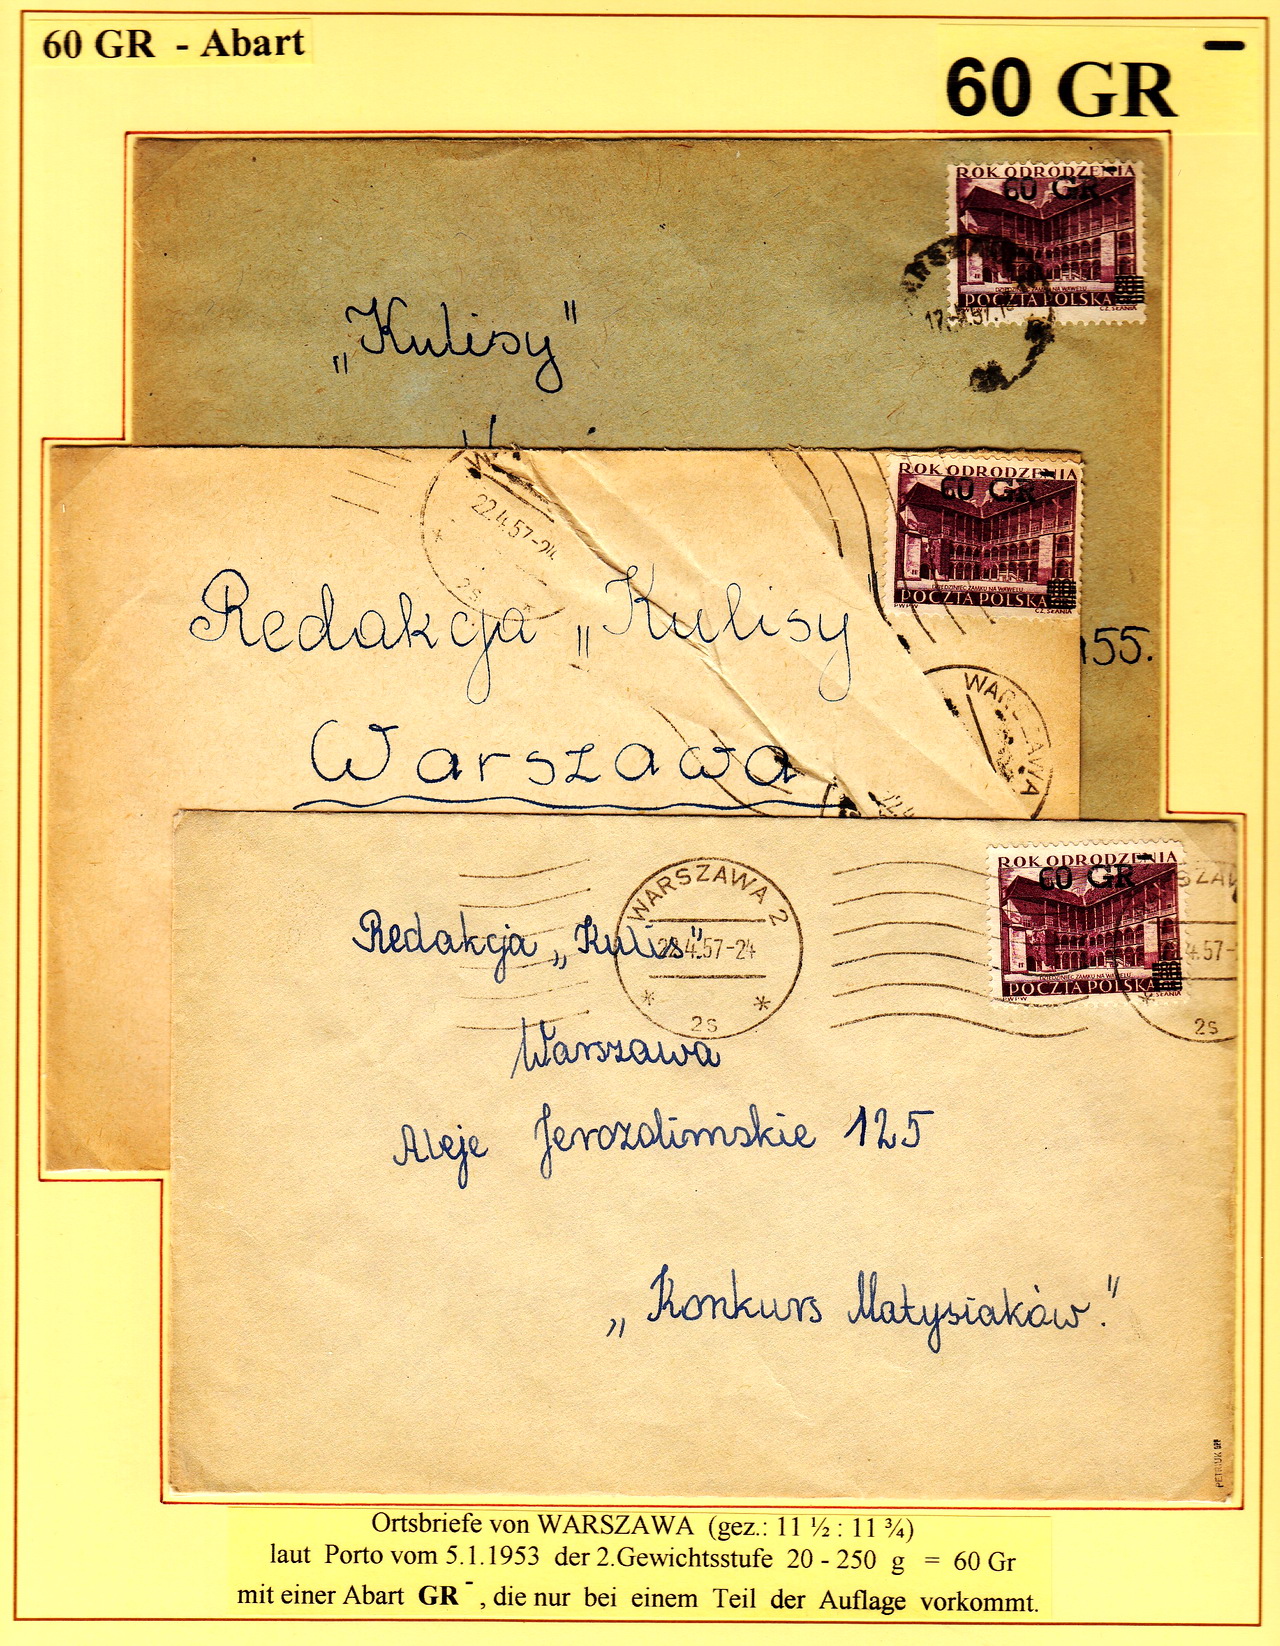 60 GR - Abart
60 GR –
ROK ODRODZENIA
60 GR
DZIEDZINIEC ZAMKU NA WAWELU
POCZTA POLSKA
CZ. SŁANIA
„Kulisy”
155.
22.4.57-24
2s
ROK ODRODZENIA
60 GR
DZIEDZINIEC ZAMKU NA WAWELU
POCZTA POLSKA
PWPW CZ. SŁANIA
Redakcja „Kulisy”
Warszawa
WARSZAWA
ROK ODRODZENIA
60 GR
DZIEDZINIEC ZAMKU NA WAWELU
POCZTA POLSKA
PWPW SŁANIA
WARSZAWA 2
22.4.57-24
2s
4.57-
2s
Redakcja „Kulis”
Warszawa
Aleje Jerozolimskie 125
„Konkurs Matysiaków.”
Ortsbriefe von WARSZAWA (gez.: 11 ½ : 11 ¾)
laut Porto vom 5.1.1953 der 2.Gewichtsstufe 20 - 250 g = 60 Gr
mit einer Abart GR ¯ , die nur bei einem Teil der Auflage vorkommt.